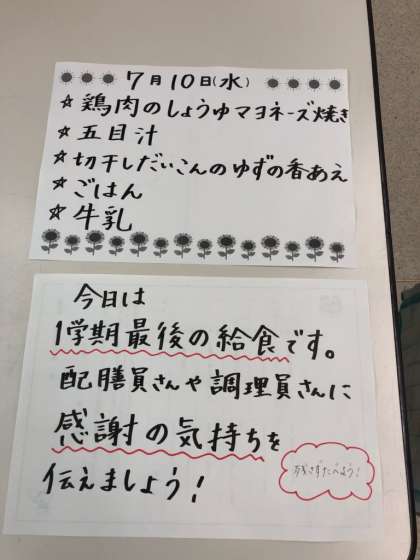 7月10日(水)
☆鶏肉のしょうゆマヨネーズ焼き
☆五目汁
☆切干しだいこんのゆずの香あえ
☆ごはん
☆牛乳
今日は
1学期最後の給食です。
配膳員さんや調理員さんに
感謝の気持ちを
伝えましょう!
残さずたべよう!